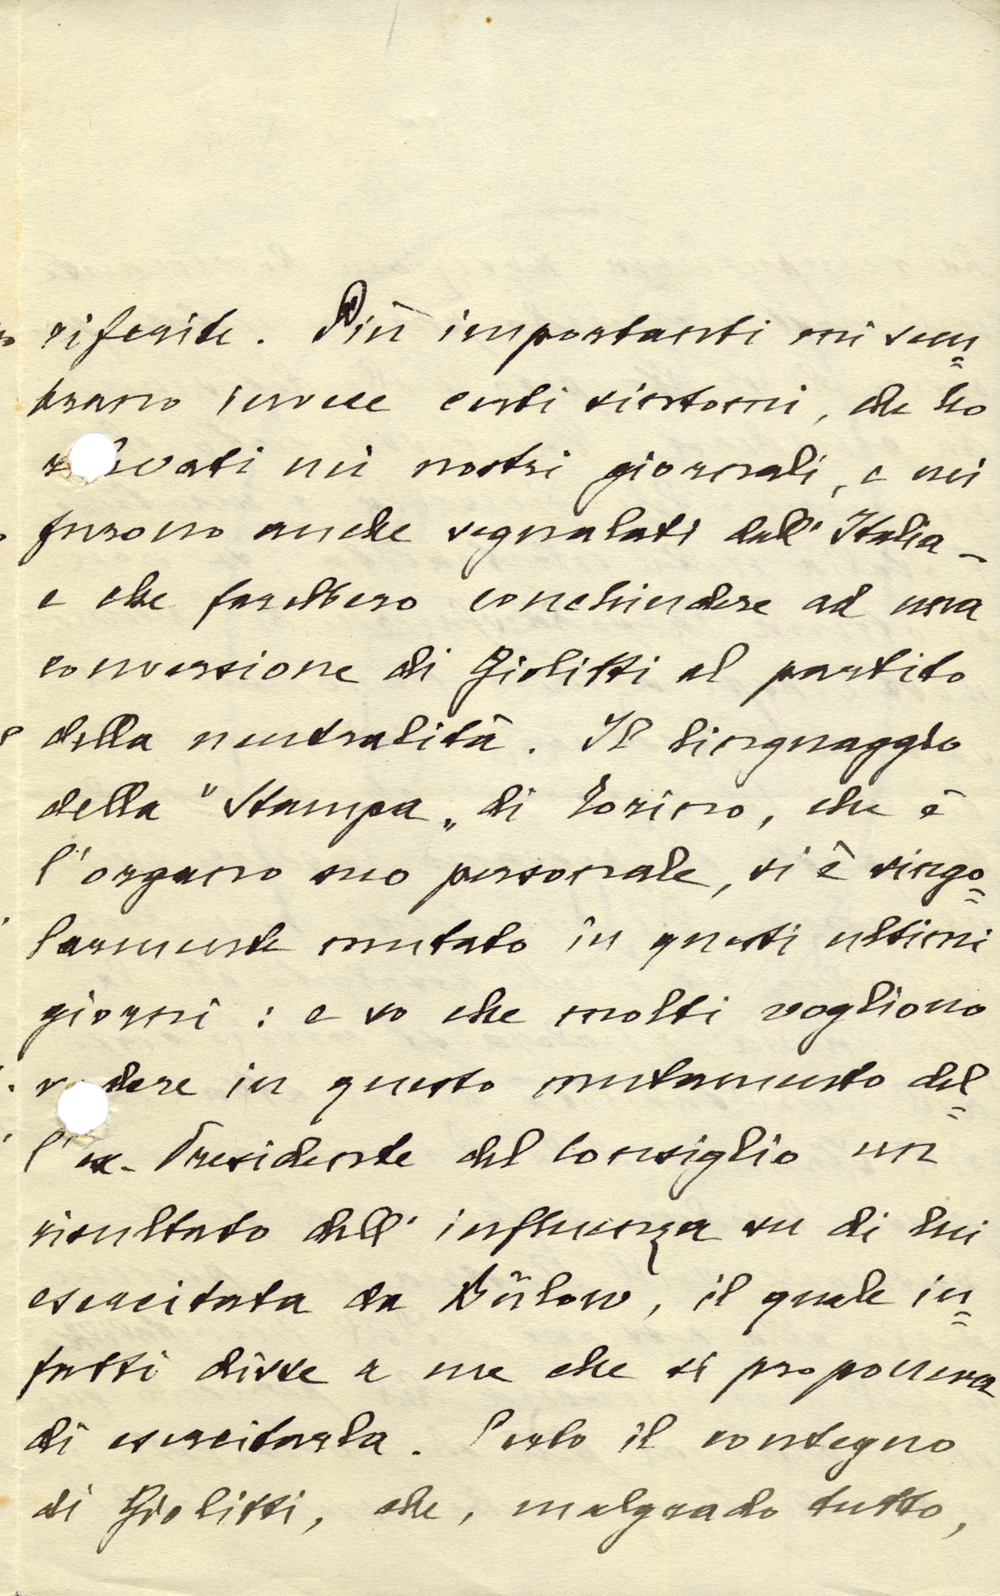 riferite. Più importanti mi sem=
brano invece certi sintomi, che ho
rilevati nei nostri giornali, e mi
furono anche segnalati dall' Italia_
e che farebbero conchiudere ad una
conversione di Giolitti al partito
della neutralità. Il linguaggio
della "Stampa„ di Torino, che è
l'organo suo personale, si è singo=
larmente mutato in questi ultimi
giorni: e so che molti vogliono
vedere in questo mutamento del=
l'ex-Presidente del Consiglio un
risultato dell' influenza su di lui
esercitata da Bülow, il quale in=
fatti disse a me che si proponeva
di esercitarla. Certo il contegno
di Giolitti, che, malgrado tutto,